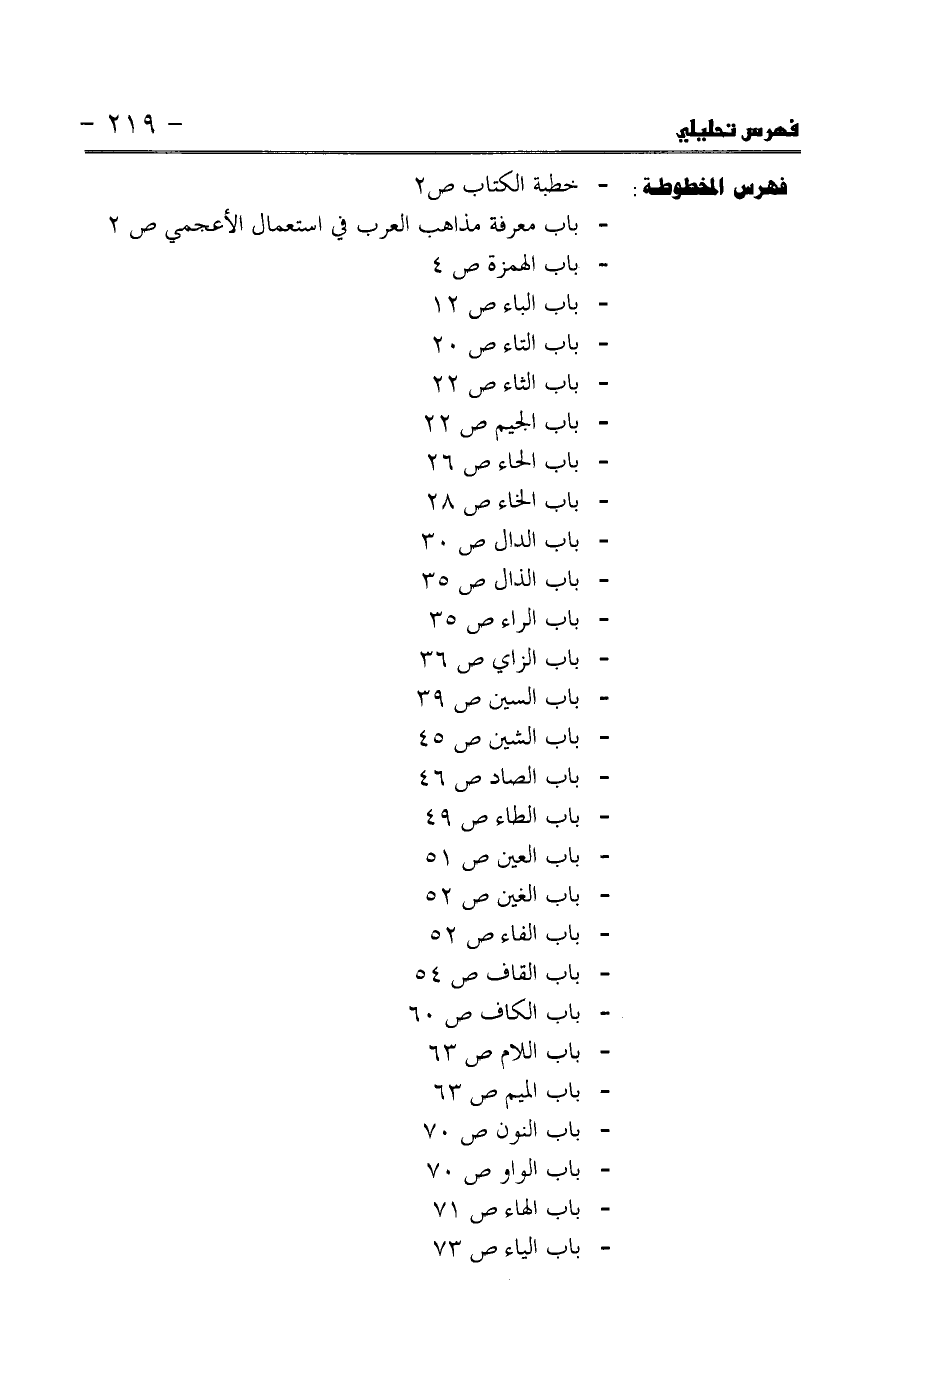 فهرس تحليلي - ٢١٩ -
فهرس المخطوطة : - خطبة الكتاب ص٢
- باب معرفة مذاهب العرب في استعمال الأعجمي ص ٢
- باب الهمزة ص ٤
- باب الباء ص ١٢
- باب التاء ص ٢٠
- باب الثاء ص ٢٢
- باب الجيم ص ٢٢
- باب الحاء ص ٢٦
- باب الخاء ص ٢٨
- باب الدال ص ٣٠
- باب الذال ص ٣٥
- باب الراء ص ٣٥
- باب الزاي ص ٣٦
- باب السين ص ٣٩
- باب الشين ص ٤٥
- باب الصاد ص ٤٦
- باب الطاء ص ٤٩
- باب العين ص ٥١
- باب الغين ص ٥٢
- باب الفاء ص ٥٢
- باب القاف ص ٥٤
- باب الكاف ص ٦٠
- باب اللام ص ٦٣
- باب الميم ص ٦٣
- باب النون ص ٧٠
- باب الواو ص ٧٠
- باب الهاء ص ٧١
- باب الياء ص ٧٣